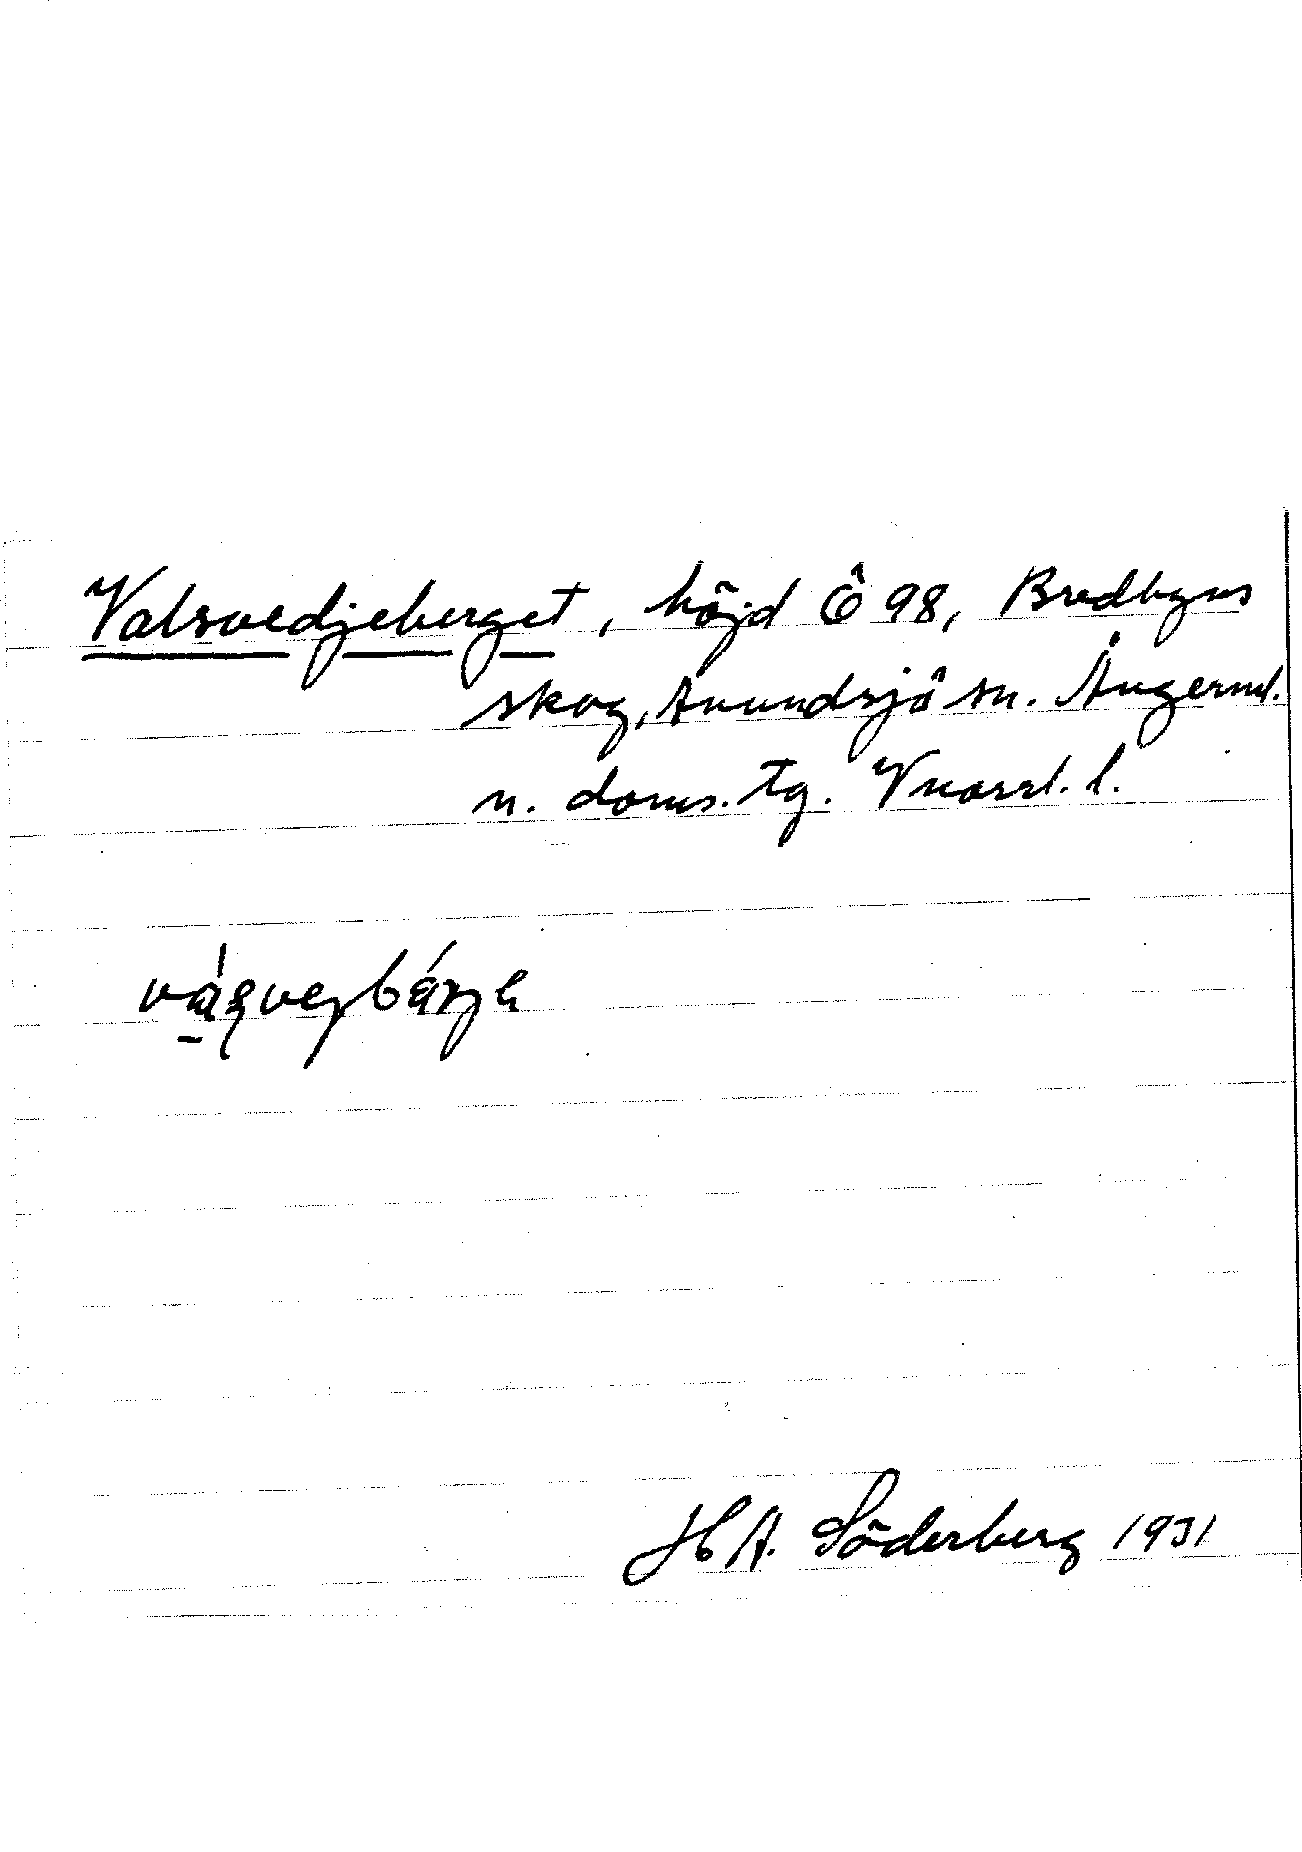 Valsvedjeberget, höjd Ö 98, Bredbyns
skog, Anundsjö sn. Ångerml.
n. doms. tg. Vnorrl. l.
H A. Söderberg 1931